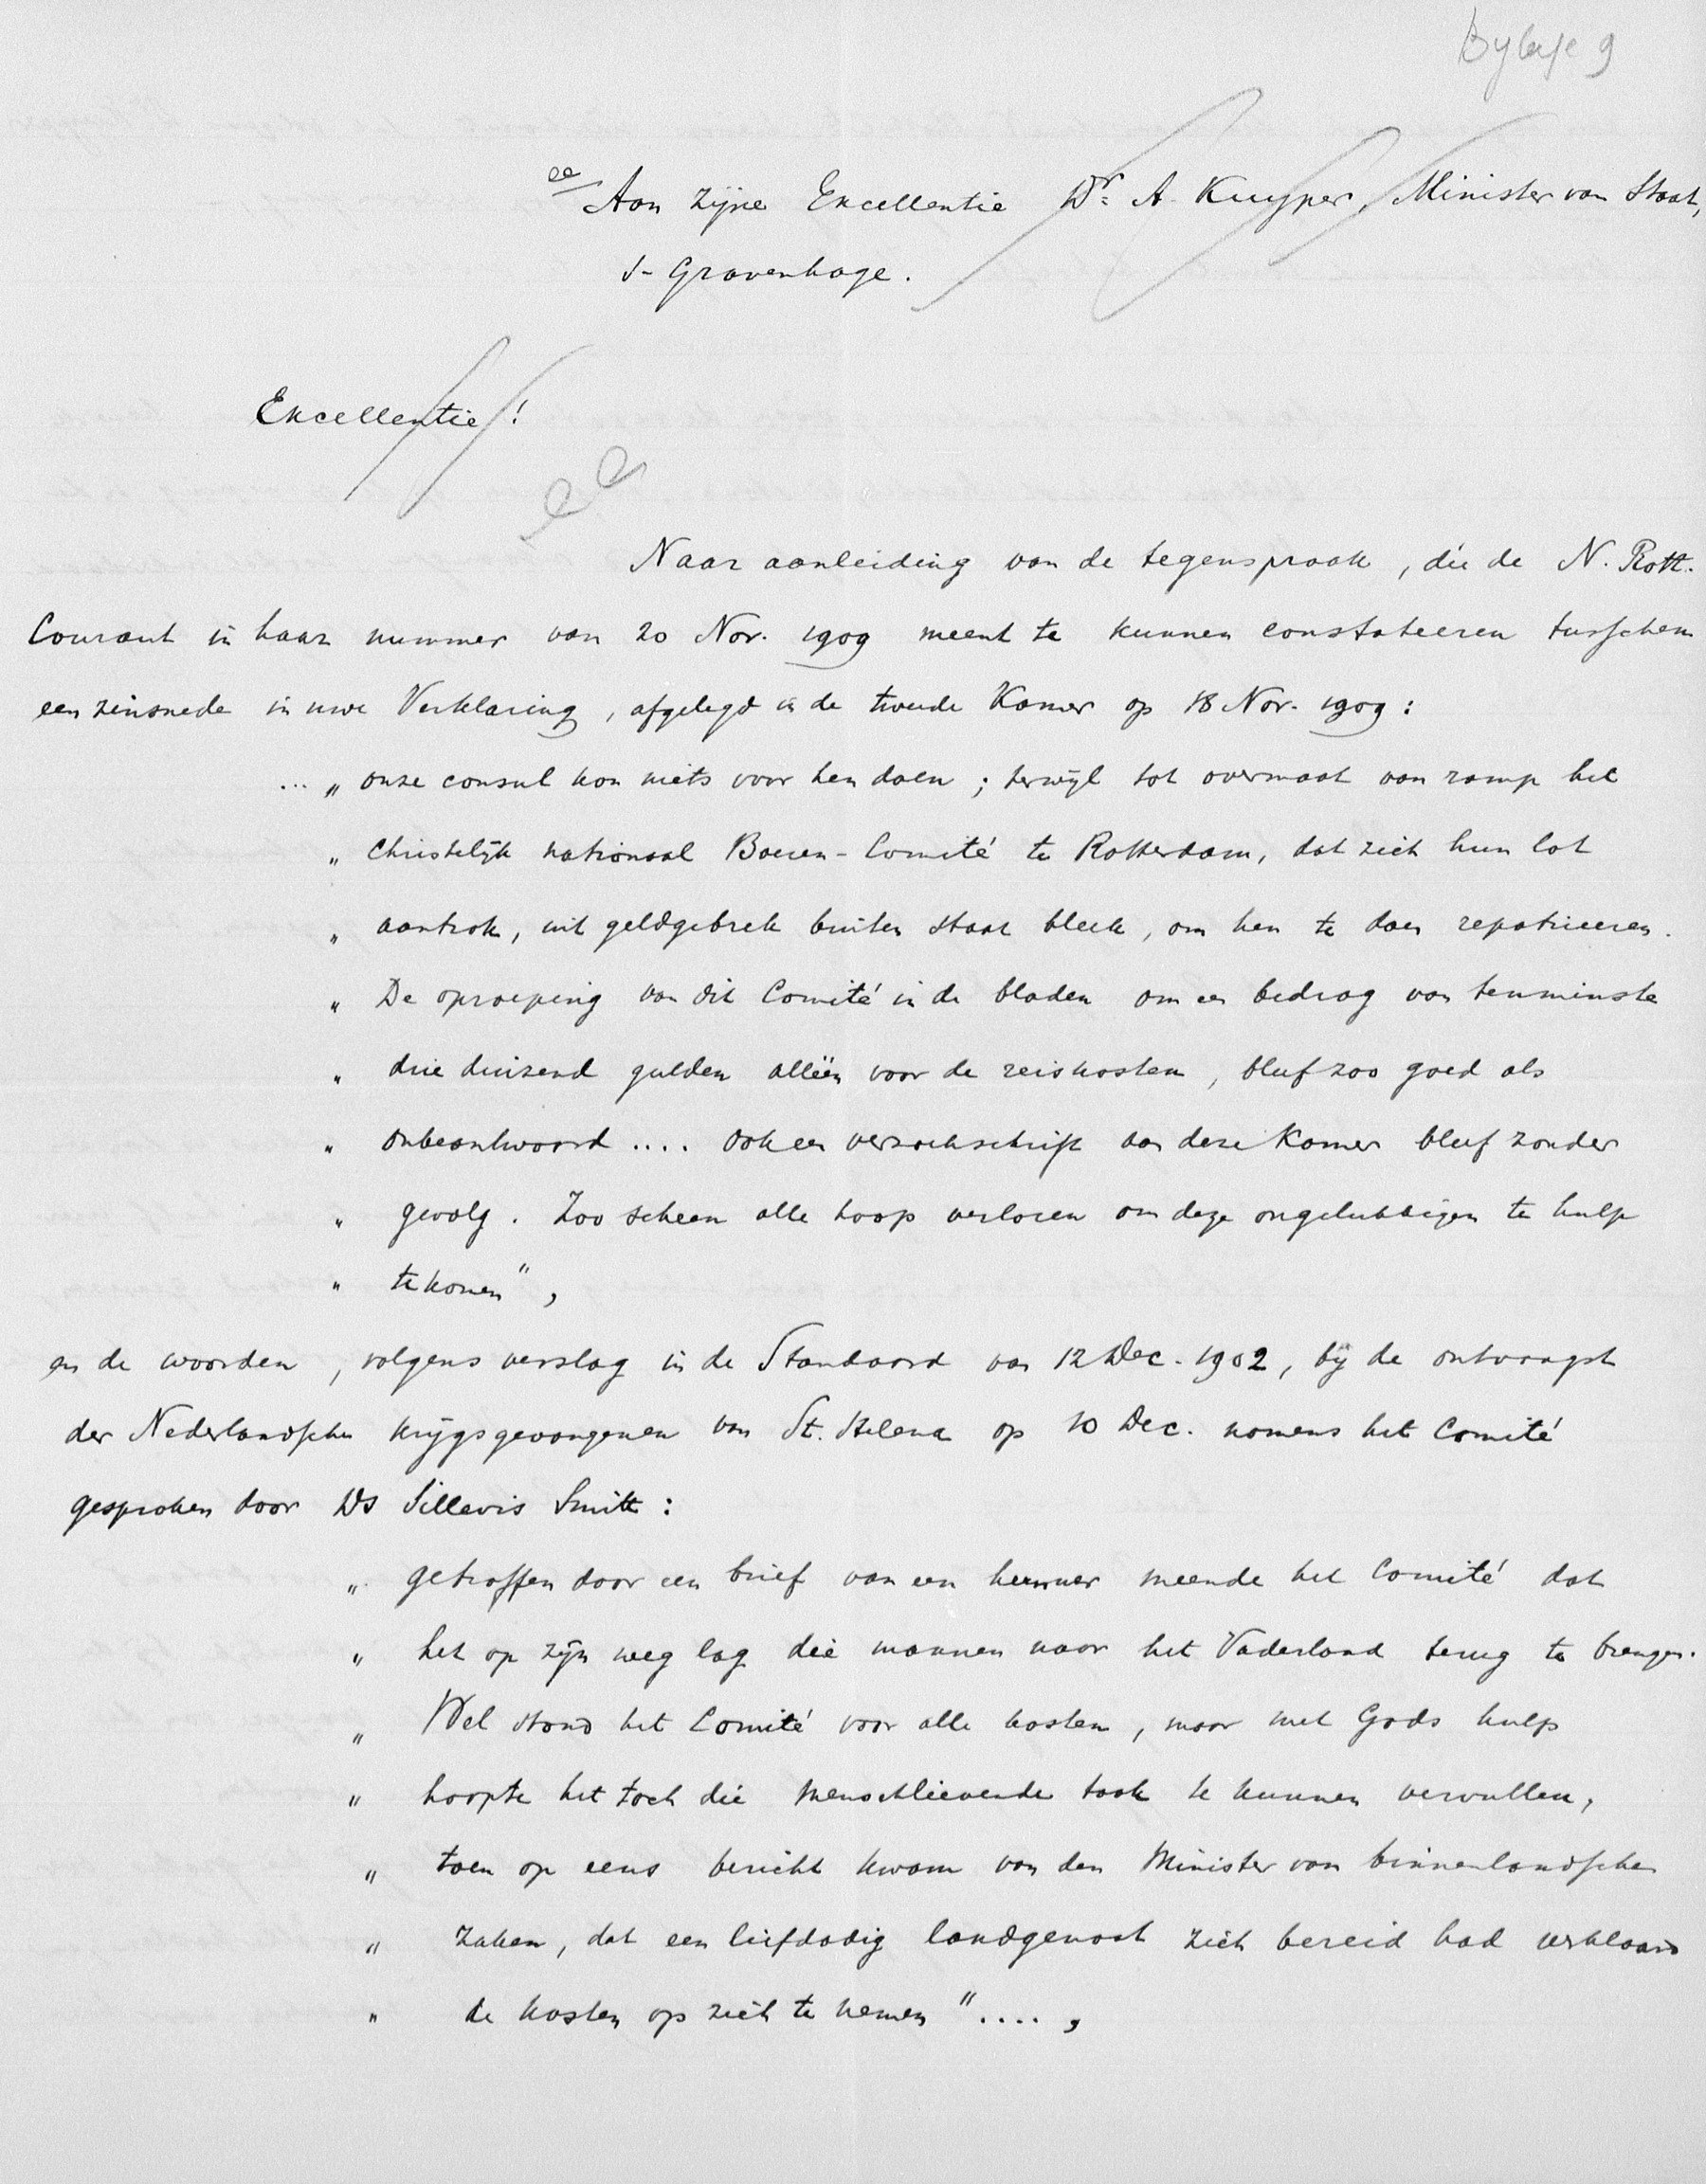 Bylage 9
Aan Zijne Excellentie Dr. A. Kuyper, Minister van Staat,
s-Gravenhage.
Excellentie!
Naar aanleiding van de tegenspraak, die de N. Rott.
Courant in haar nummer van 20 Nov. 1909 meent te kunnen constateeren tusschen
een zinsnede in uwe Verklaring, afgelegd in de tweede Kamer op 18 Nov. 1909:
... „ onze consul kon niets voor hen doen; terwijl tot overmaat van ramp het
„ Christelijk nationaal Boeren-Comité te Rotterdam, dat zich hun lot
„ aantrok, uit geldgebrek buiten staat bleek, om hen te doen repatrieeren.
„ De oproeping van dit Comité in de bladen om een bedrag van tenminste
„ drie duizend gulden alléén voor de reiskosten, bleef zoo goed als
„ onbeantwoord .... ook een verzoekschrift aan deze Kamer bleef zonder
„ gevolg. Zoo scheen alle hoop verloren om deze ongelukkigen te hulp
„ te komen",
en de woorden, volgens verslag in de Standaard van 12 Dec. 1902, bij de ontvangst
der Nederlandsche krijgsgevangenen van St. Helena op 10 Dec. namens het Comité
gesproken door Ds Sillevis Smitt:
„ getroffen door een brief van een hunner meende het Comité dat
„ het op zijn weg lag die mannen naar het Vaderland terug te brengen.
„ Wel stond het Comité voor alle kosten, maar met Gods hulp
„ hoopte het toch die menschlievende taak te kunnen vervullen,
„ toen op eens bericht kwam van den Minister van binnenlandsche
„ zaken, dat een liefdadig landgenoot zich bereid had verklaard
„ de kosten op zich te nemen" ....,